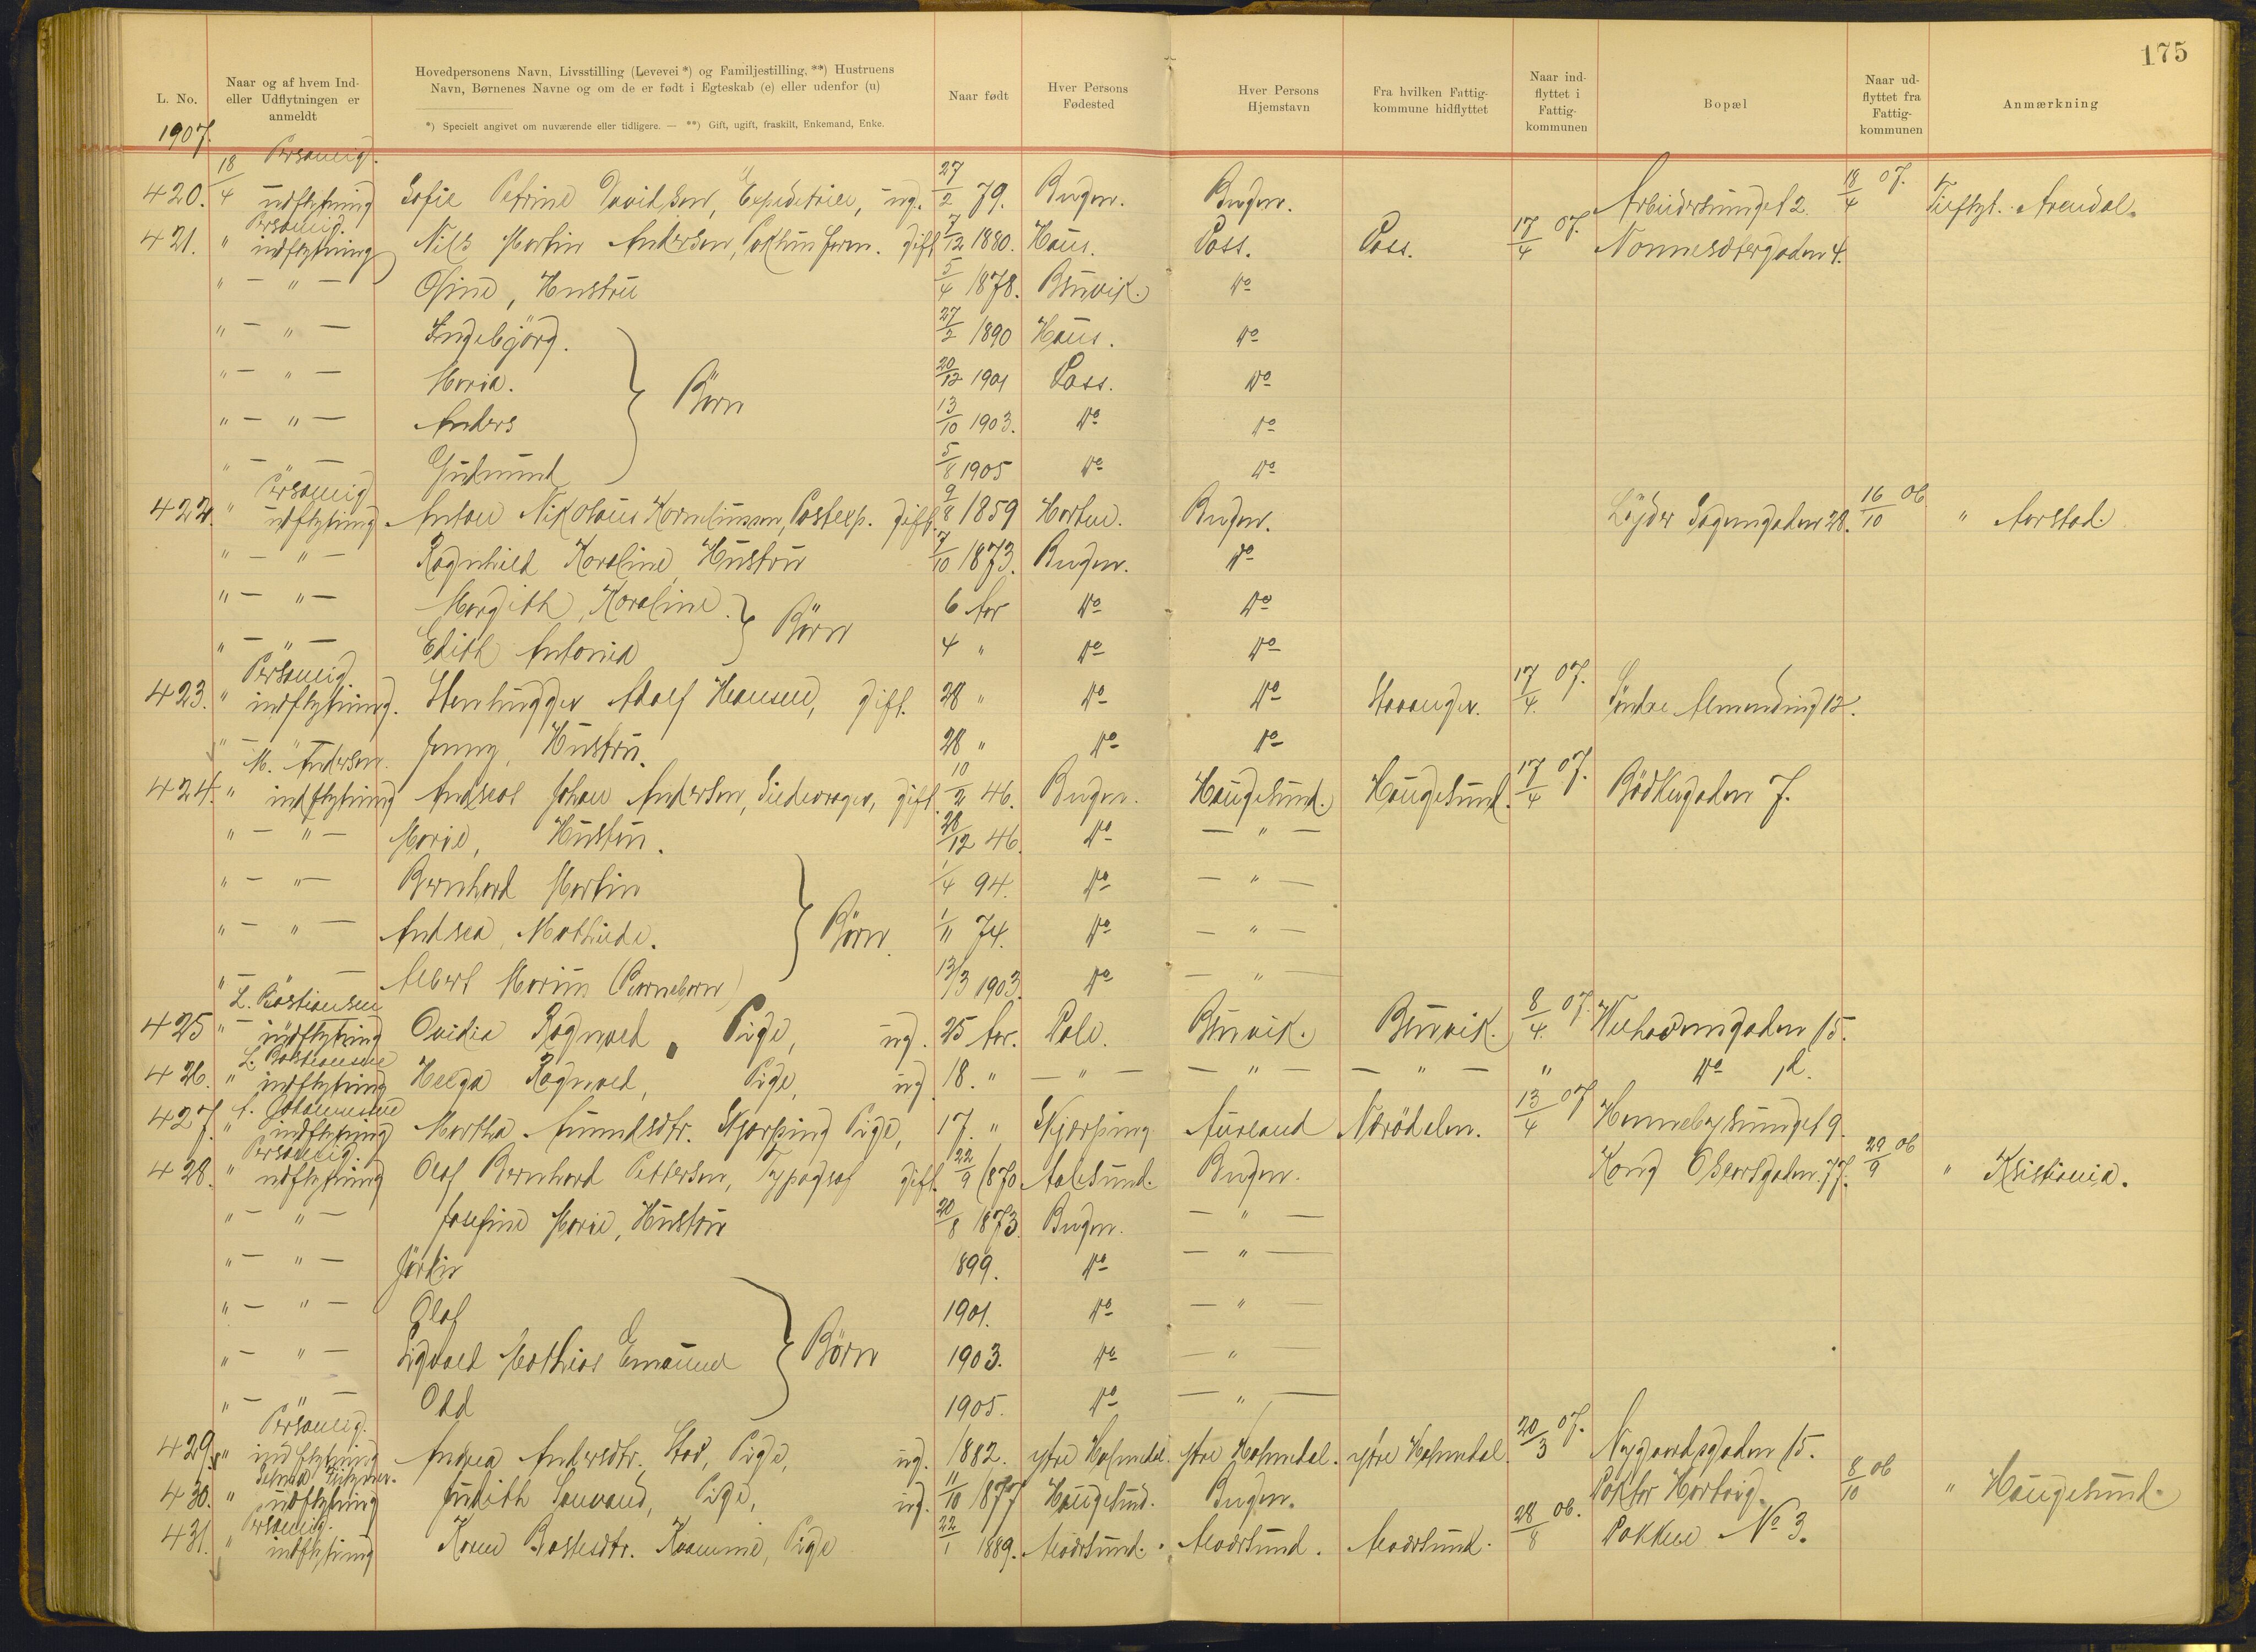 175
L. No.
Naar og af hvem Ind- eller Udflytningen er anmeldt
Hovedpersonens Navn, Livsstilling (Levevei *) og Familjestilling, **) Hustruens Navn, Børnenes Navne og om de er født i Egteskab (e) eller udenfor (u)
*) Specielt angivet om nuværende eller tidligere. — **) Gift, ugift, fraskilt, Enkemand, Enke.
Naar født
Hver Persons Fødested
Hver Persons Hjemstavn
Fra hvilken Fattig- kommune hidflyttet
Naar ind- flyttet i Fattig- kommunen
Bopæl
Naar ud- flyttet fra Fattig- kommunen
Anmærkning
1907.
420. 18/4 Personlig. udflytning Sofie Petrine Davidsen, Expeditrice, ug. 27/2 79. Bergen. Bergen. 2. 18/4 07. Arendal.
421. " Personlig. indflytning Nils Martin Andersen, gift 7/12 1880. Haus. Voss. Voss. 17/4 07. Nonnestergaden 4.
" — " — Oline, Hustru 5/4 1878. Bruvik. Do
" — " — Ingebjörg. 27/2 1890 Haus. Do
" — " — Maria. Börn 20/12 1901 Voss. Do
" — " — Anders 13/10 1903. Do Do
" — " — Gudmund 5/8 1905 Do Do
422. " Personlig udflytning Anton Nikolaus Korneliussen, Postexp. gift. 9/8 1859 Horten. Bergen. Lyder Sagensgaden 28. 16/10 06 " Aarstad.
" — " — Ragnhild Karoline, Hustru 7/10 1873. Bergen. Do
" — " — Margith, Karoline. Börn 6 Aar Do Do
" — " — Edith Antonia 4 " Do Do
423. " Personlig. indflytning. Stenhugger Adolf Hansen, gift. 28 " Do Do Stavanger. 17/4 07. Søndre Almending 12.
" — " — Jenny, Hustru. 28 " Do Do
424. " M. Andersen. indflytning Andreas Johan Andersen, gift. 10/2 46. Bergen. Haugesund. Haugesund. 17/4 07. Bödkergaden 7.
" — " — Marie, Hustru. 28/12 46. Do — " —
" — " — Bernhard Martin 1/4 94. Do — " —
" — " — Andrea, Mathilde. Börn. 1/11 74. Do — " —
" — — Albert Marius 13/3 1903. Do — " —
425 " L. Bastiansen indflytning Ovidia Rognved, Pige, ug. 25 Aar. Bruvik. Bruvik. 8/4 07. 15.
426. " L. Bastiansen indflytning Helga Rognved, Pige, ug 18. " — " — — " — — " — " Do
427. " A. Johannesen indflytning Martha Amundsdtr. Skjerping Pige, 17. " Skjerping Aurland Nærödalen. 13/4 07 9.
428. " Personlig. udflytning Olaf Bernhard Pettersen, Typograf gift. 22/9 1870 Aalesund. Bergen. Kong Oscarsgaden. 77. 29/9 06 " Kristiania.
" — " — Josefine Marie, Hustru 20/8 1873. Bergen. — " —
" — " — 1899. Do — " —
" — " — Olaf 1901. Do — " —
" — " — Sigvald Mathias Emanuel Börn 1903. Do — " —
" — " — Odd 1905. Do — " —
429. " Personlig. indflytning Andrea Andersdtr. Pige, ug. 1882. ytre Holmedal. ytre Holmedal. ytre Holmedal. 20/3 07. Nygaardsgaden 15.
430. " udflytning Judith Pige, ug. 11/10 1877 Haugesund. Bergen. 8/10 06 " Haugesund.
431. " Personlig. indflytning Karen Pige 22/1 1889. Alversund. Alversund. Alversund. 28/8 06. No 3.